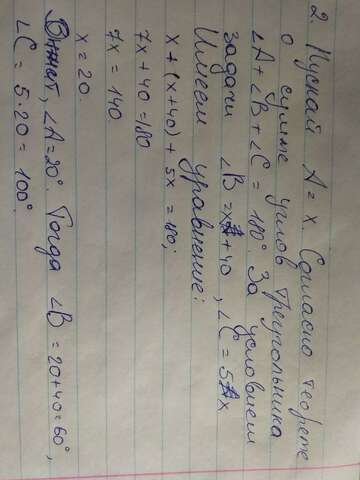 2. Пускай A = x. Согласно теореме
о сумме углов треугольника
∠A + ∠B + ∠C = 180°. За условием
задачи ∠B = x + 40, ∠C = 5x
Имеем уравнение:
x + (x + 40) + 5x = 180;
7x + 40 = 180
7x = 140
x = 20.
∠A = 20°. Тогда ∠B = 20 + 40 = 60°,
∠C = 5·20 = 100°.